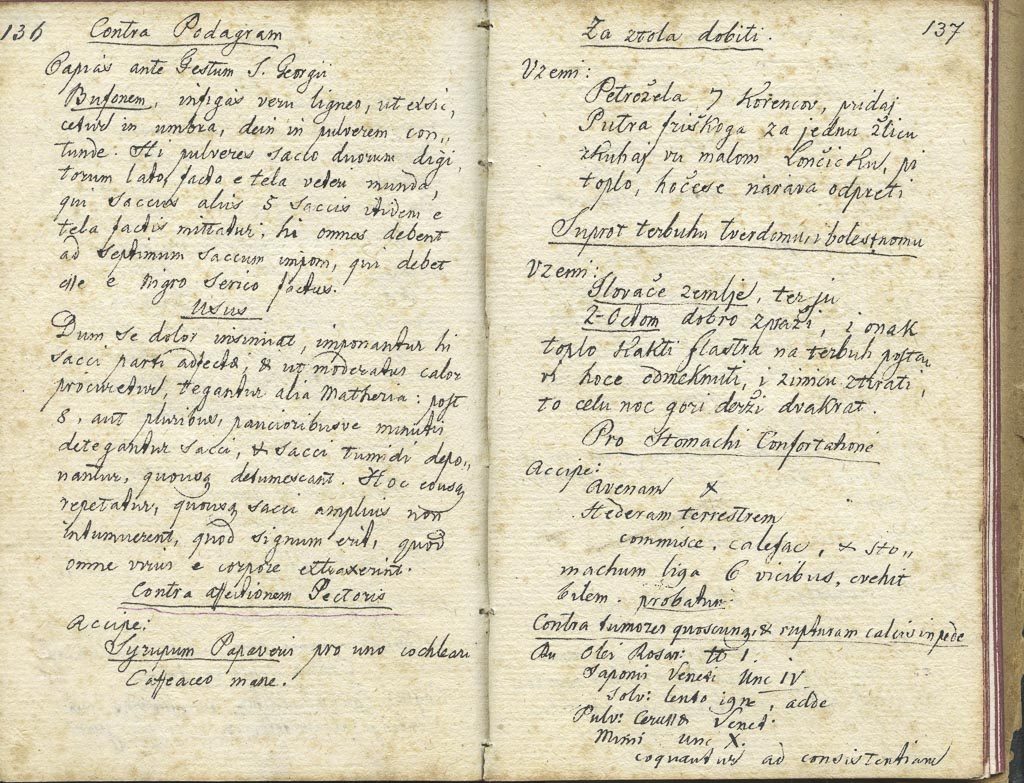 136
Contra Podagram
Capias ante Festum S. Georgii
Bufonem, infigas veru ligneo, ut exsic,
cetur in umbra, dein in pulverem con,,
tunde. Hi pulveres sacco duorum digi
torum lato, facto e tela veteri munda,
qui saccus aliis 5 saccis itidem e
tela factis mittatur, hi omnes debent
ad septimum saccum imponi, qui debet
esse e nigro serico factus.
Usus
Dum se dolor insinuat, imponantur hi
sacci parti adfectæ, & ut moderatus calor
procuretur, tegantur alia Matheria: post
8, aut pluribus, paucioribusve minutis
detegantur sacci, & sacci tumidi depo,,
nantur, quousq detumescant. Hoc eousq
repetatur, quousq sacci amplius non
intumuerint, quod signum erit, quod
omne virus e corpore extraxerint.
Contra affectionem Pectoris
Accipe:
Syrupum Papaveris pro uno cochleari
Caffeaceo mane.
137
Za ztola dobiti.
Vzemi:
Petrožela 7 Korencov, pridaj
Putra friškoga za jednu žlicu
zkuhaj vu malom Lončicku, pi
toplo, hočese narava odpreti
Suprot terbuhu tverdomu, i bolestnomu
Vzemi:
Slovače zemlje, ter ju
z Octom dobro zpraži, i onak
toplo kakti flastra na terbuh postav
vi hoce odmeknuti, i zimicu ztirati,
to celu noc gori derži dvakrat.
Pro Stomachi Confortatione
Accipe:
Avenam &
Hederam terrestrem
commisce, calefac, & sto,,
machum liga 6 vicibus, evehit
bilem. probatur.
Contra tumores quoscunq, & rupturam calcis in pede
Ru Olei Rosar: ℔ 1.
Saponi Veneti Unc IV
Solv: lento igne, adde
Pulv: Cerussæ Venet:
Minii unc X.
coquantur ad consistentiam